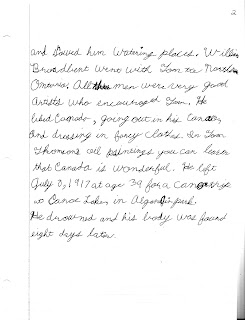 2
and David him Watering places. William
Broadbent went with Tom to Northern
Ontario. All these men were very good
Artists who encouraged Tom. He
liked Canada, going out in his Canoe,
and dressing in fancy cloths. In Tom
Thomsons oil paintings you can learn
that Canada is wonderful. He left
July 8, 1917 at age 39 for a
to Canoe Lake, in Algonquin park.
He drowned and his body was found
eight days later.